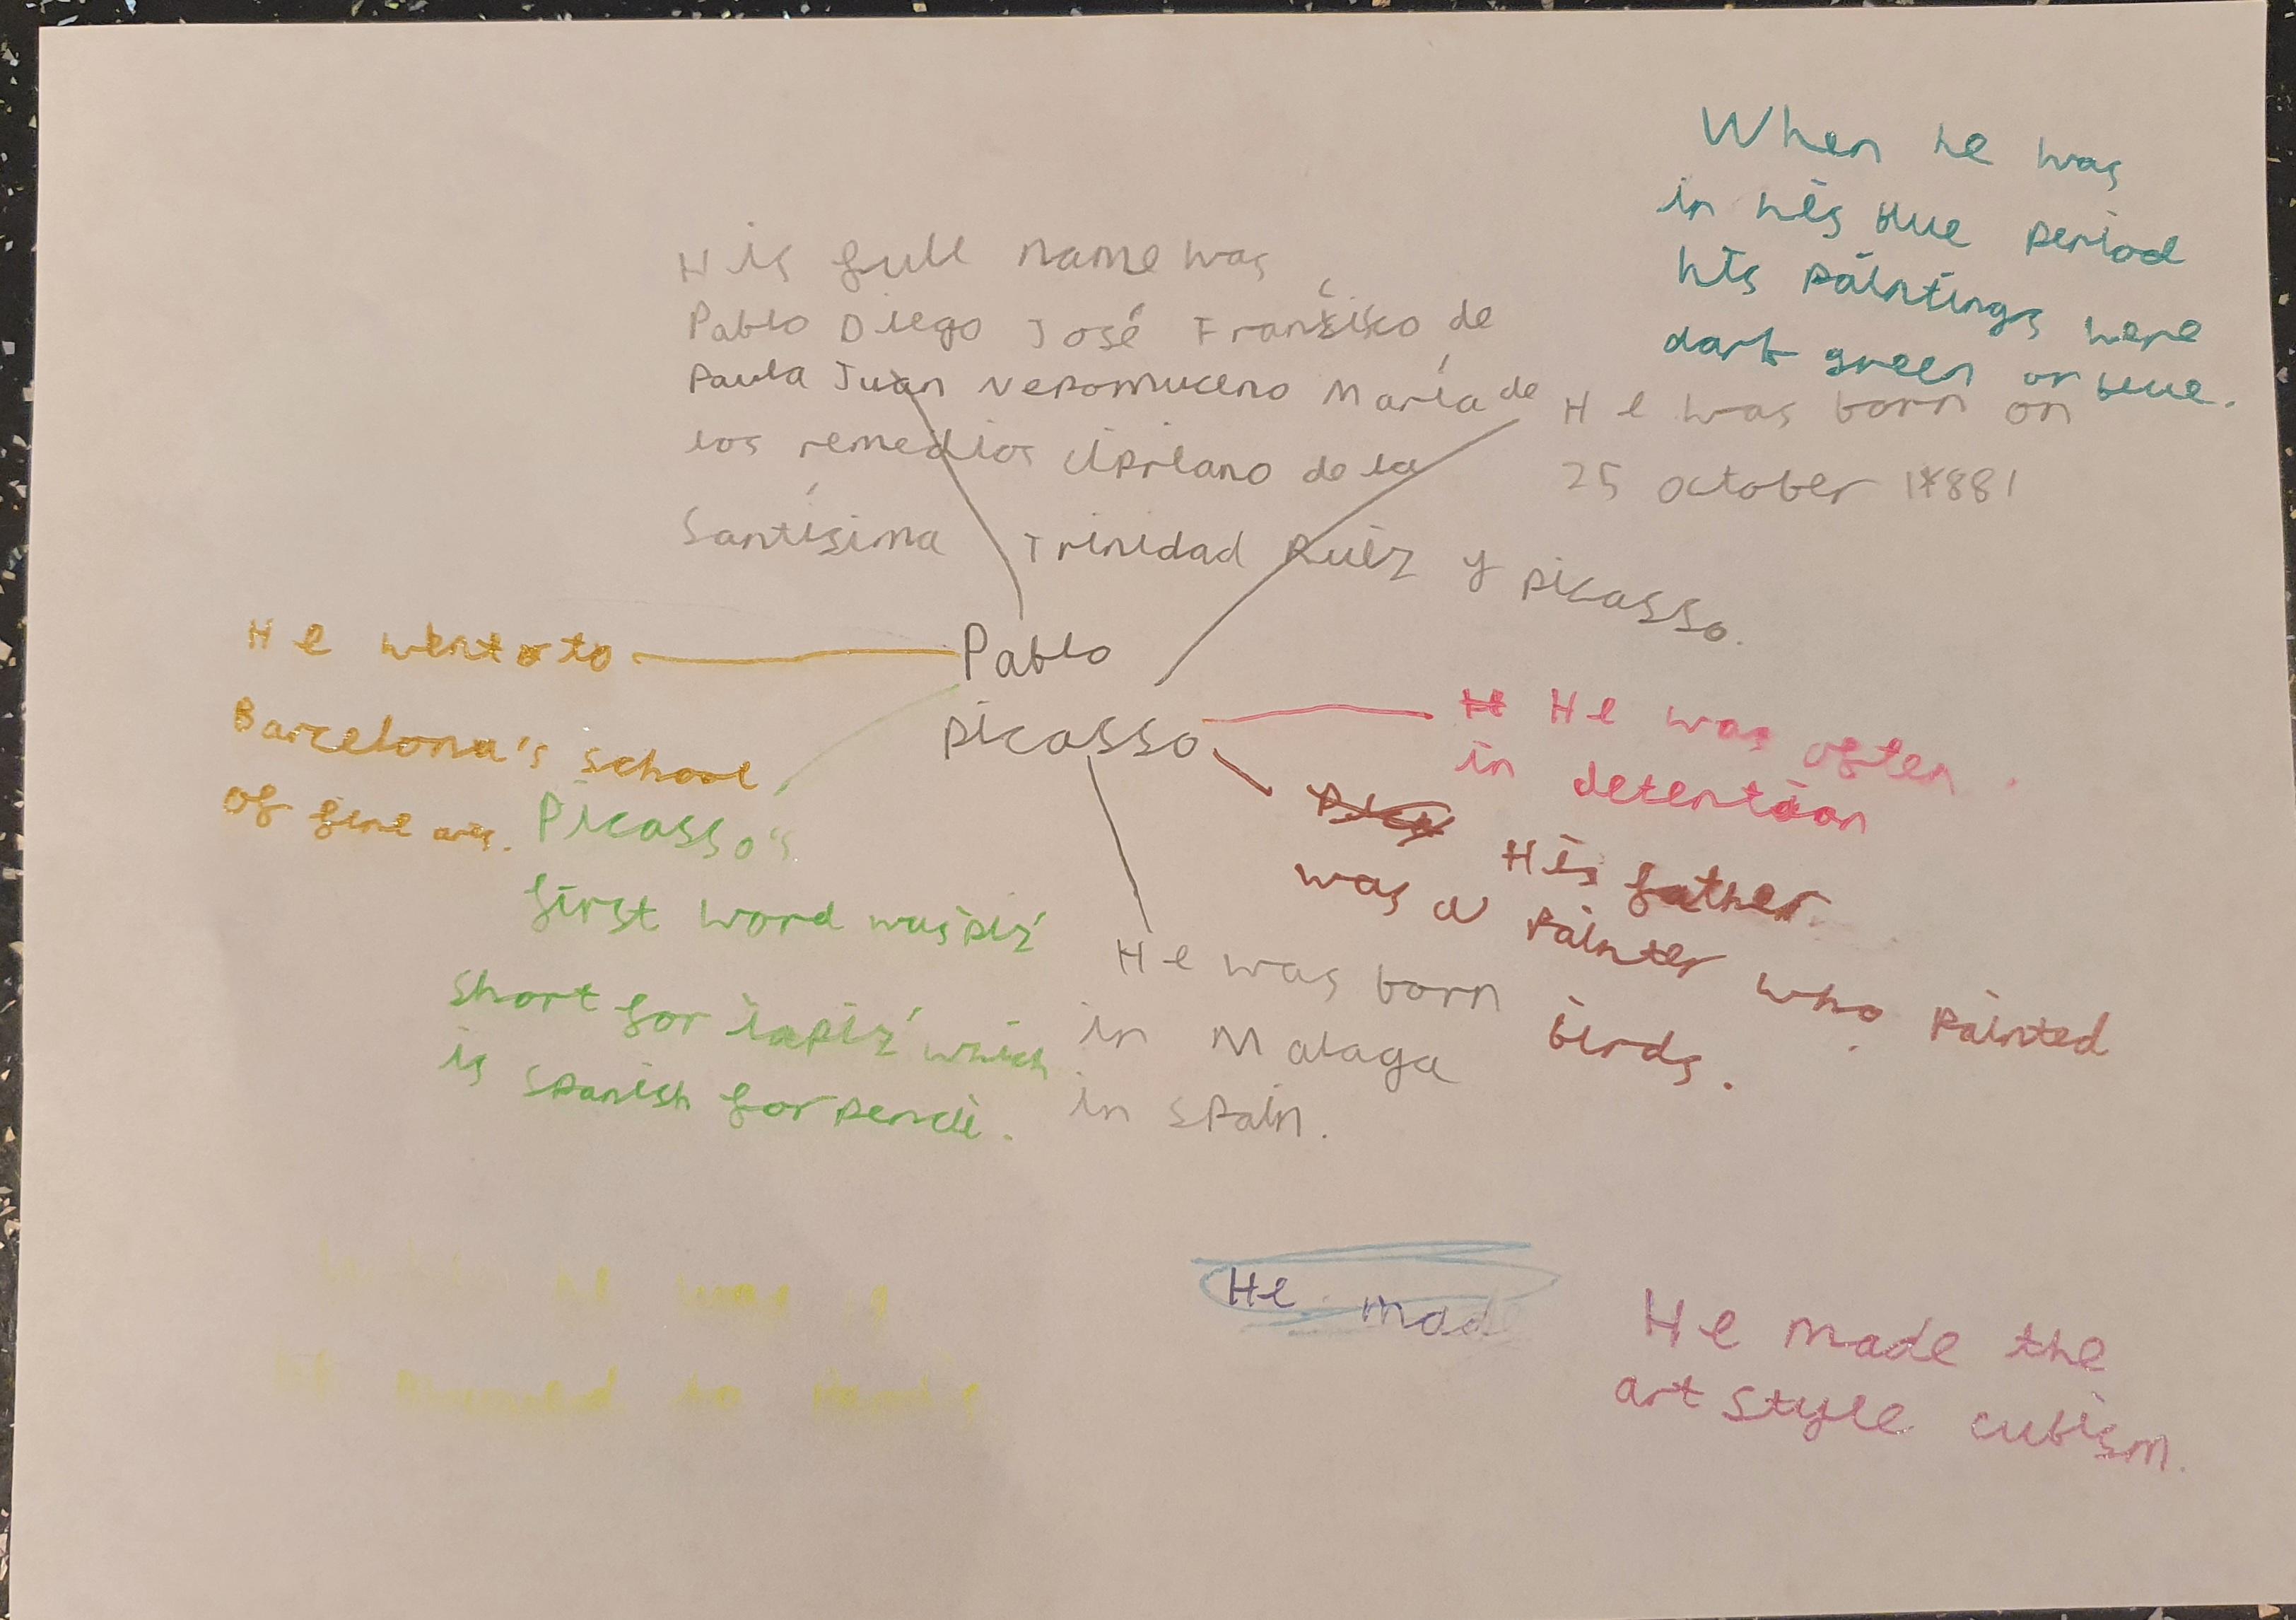 When he was
in his blue period
his paintings were
dark green or blue.
His full name was
Pablo Diego José Francisco de
Paula Juan Nepomuceno María de
los remedios Cipriano de la
Santísima Trinidad Ruiz y picasso.
He was born on
25 october 1881
Pablo
picasso
He went to
Barcelona's school
of fine arts.
He was often
in detention
His father
was a painter who painted
birds.
Picasso's
first word was 'piz'
short for 'lapiz' which
is spanish for pencil.
He was born
in Malaga
in spain.
he was 19
moved to Paris
He made
He made the
art style cubism.